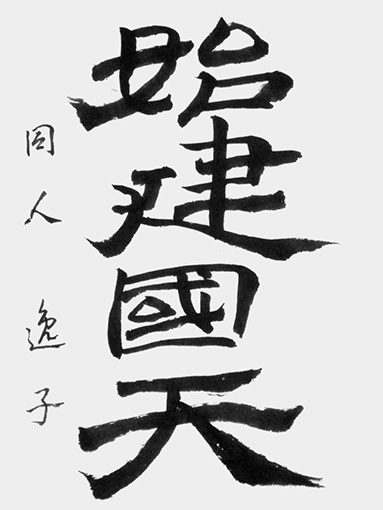 始建國天
同人 逸子